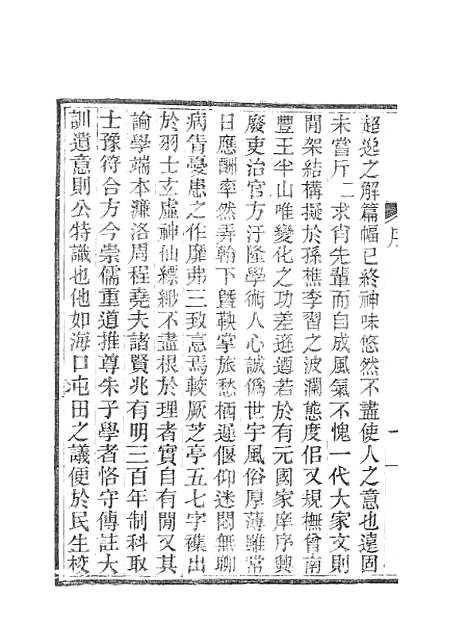 超逸之解篇幅已終神味悠然不盡使人之意也遠固
未嘗斤二求肖先輩而自成風氣不愧一代大家文則
閒架結構擬於孫樵李習之波瀾態度佀又規橅曾南
豐王半山唯變化之功差遜遒若於有元國家庠序興
廢吏治官方汙隆學術人心誠僞世宇風俗厚薄雖常
日應酬率然弄翰下曁鞅掌旅愁栖遲偃仰迷悶無聊
病眚憂患之作靡弗三致意焉較厥芝亭五七字襍出
於羽士玄虛神仙縹緲不盡根於理者實自有閒又其
論學端本濂洛周程堯夫諸賢兆有明三百年制科取
士豫符合方今崇儒重道推尊朱子學者恪守傳註大
訓遺意則公特識也他如海口屯田之議便於民生校
序
一